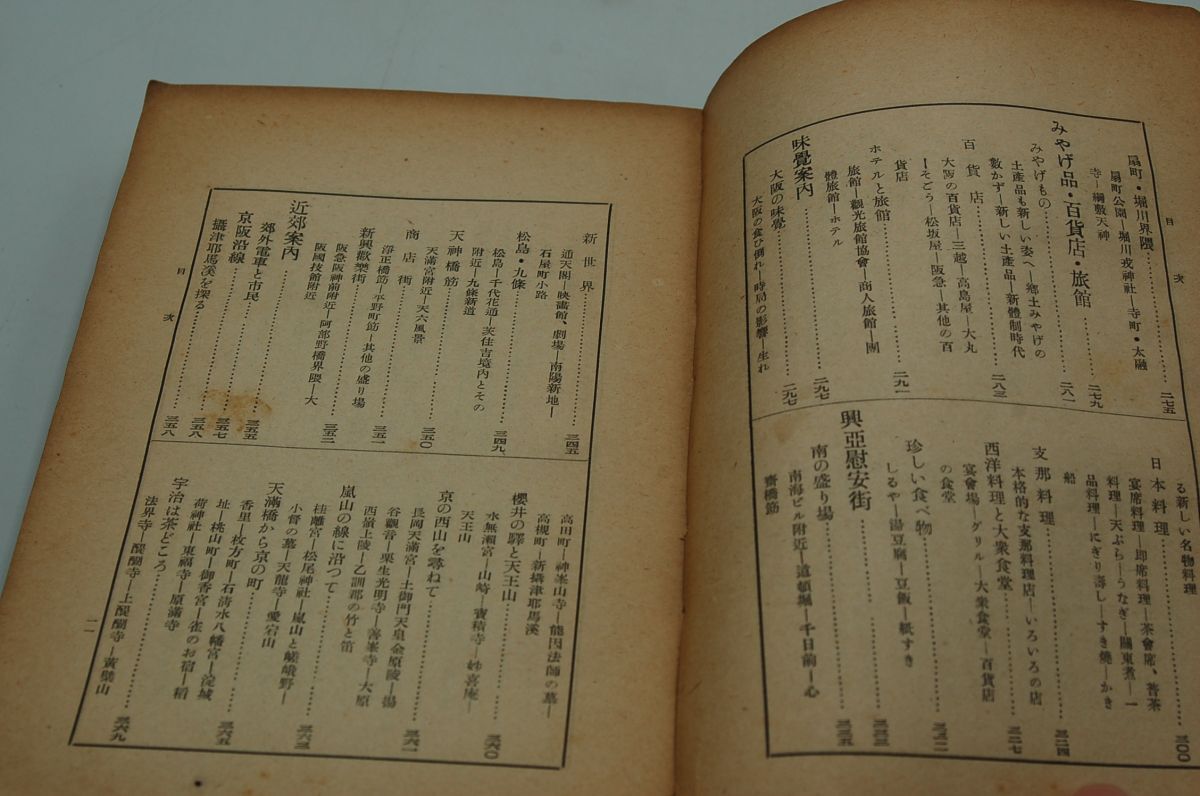 目次
扇町・堀川界隈……二七五
扇町公園―堀川戎神社―寺町・太融
寺―綱敷天神
みやげ品・百貨店・旅館……二七九
みやげもの……二八一
土産品も新しい姿へ―郷土みやげの
數かず―新しい土產品―新體制時代
百貨店……二八三
大阪の百貨店―三越―高島屋―大丸
―そごう―松坂屋―阪急―其他の百
貨店
ホテルと旅館……二九一
旅館―觀光旅館協會―商人旅館―團
體旅館―ホテル
味覺案內……二九七
大阪の味覺……二九七
大阪の食ひ倒れ―時局の影響―生れ
る新しい名物料理
日本料理……三〇〇
宴席料理―即席料理―茶會席、普茶
料理―天ぷら―うなぎ―關東煮―一
品料理―にぎり壽し―すき燒―かき
船
支那料理……三二四
本格的な支那料理店―いろいろの店
西洋料理と大衆食堂……三二七
宴會場―グリル―大衆食堂―百貨店
の食堂
珍しい食べ物……三三二
しるや―湯豆腐―豆飯―紙すき
興亞慰安街……三三三
南の盛り場……三三五
南海ビル附近―道頓堀―千日前―心
齋橋筋
新世界……三四五
通天閣―映畫館、劇場―南陽新地―
石屋町小路
松島・九條……三四九
松島―千代花通―茨住吉境內とその
附近―九條新道
天神橋筋……三五〇
天滿宮附近―天六風景
商店街……三五一
淨正橋筋―平野町筋―其他の盛り場
新興歡樂街……三五二
阪急阪神前附近―阿部野橋界隈―大
阪國技館附近
近郊案內……三五五
郊外電車と市民……三五七
京阪沿線……三五八
攝津耶馬溪を探る……三五八
高田町―神峯山寺―能因法師の墓―
高槻町―新攝津耶馬溪
櫻井の驛と天王山……三六〇
水無瀨宮―山崎―寶積寺―妙喜庵―
天王山
京の西山を尋ねて……三六一
長岡天滿宮―土御門天皇金原陵―揚
谷觀音―粟生光明寺―善峯寺―大原
西嶺上陵―乙訓郡の竹と笛
嵐山の線に沿つて……三六三
桂離宮―松尾神社―嵐山と嵯峨野―
小督の墓―天龍寺―愛宕山
天滿橋から京の町……三六五
香里―枚方町―石淸水八幡宮―淀城
址―桃山町―御香宮―雀のお宿―稻
荷神社―東福寺―原滿寺
宇治は茶どころ……三六九
法界寺―醍醐寺―上醍醐寺―黃檗山
目次
一一